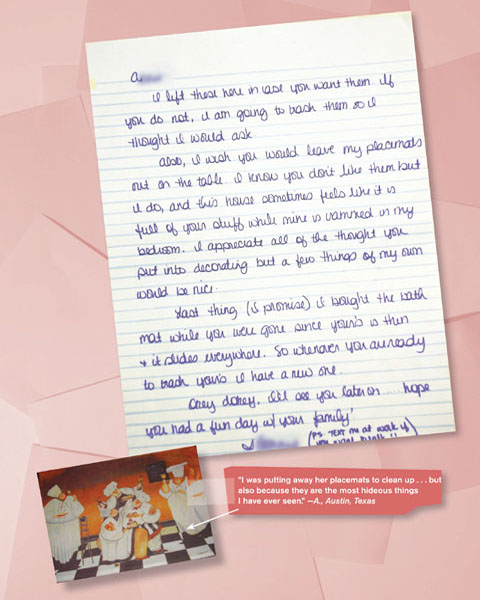 A
I left these here in case you want them. If
you do not, I am going to trash them so I
thought I would ask.
Also, I wish you would leave my placemats
out on the table. I know you don't like them but
I do, and this house sometimes feels like it is
full of your stuff while mine is crammed in my
bedroom. I appreciate all of the thought you
put into decorating but a few things of my own
would be nice.
Last thing (I promise) I bought the bath
mat while you were gone since your's is thin
+ it slides everywhere. So whenever you are ready
to trash your's I have a new one.
Okey dokey, I'll see you later on..... hope
you had a fun day w/ your family!
(PS. Text me at work if
you want
"I was putting away her placemats to clean up . . . but
also because they are the most hideous things
I have ever seen." —A., Austin, Texas